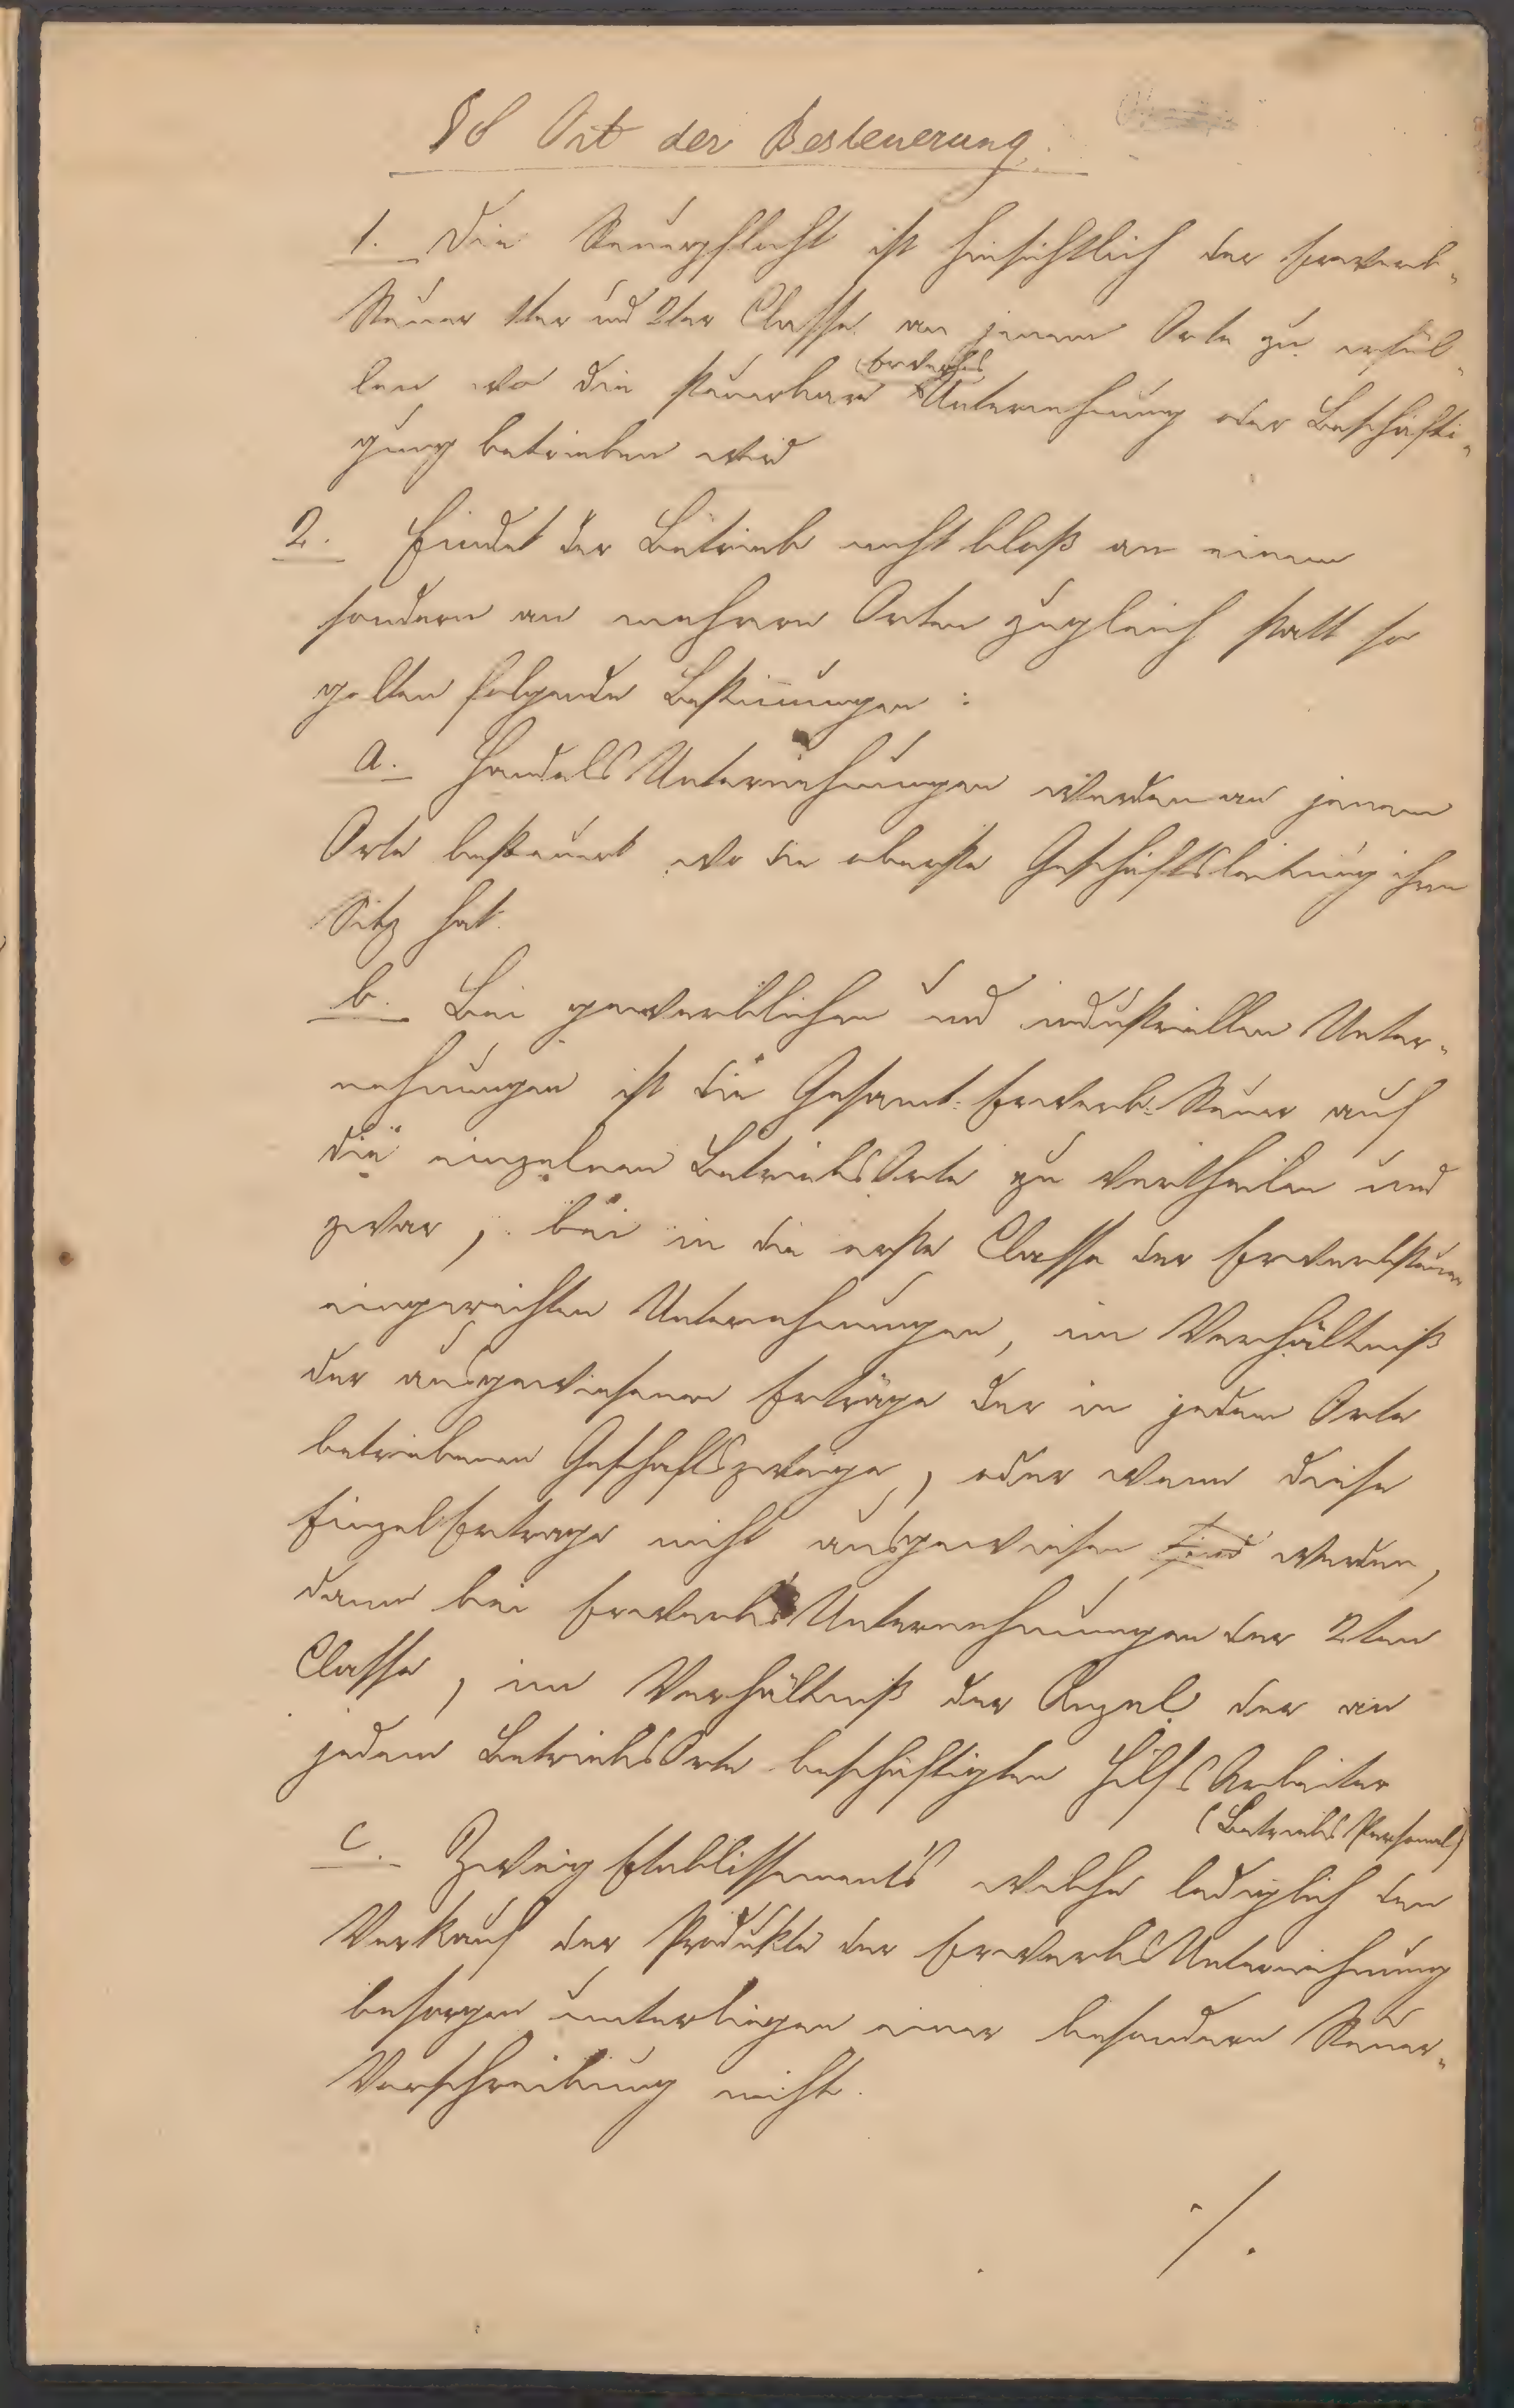 §8 Ort der Besteuerung.
1. Die Steuerpflicht ist hinsichtlich der Erwerb-
Steuer 1ter und 2ter Classe an jenem Orte zu erfül-
len, wo die steuerbare Erwerbs
Unternehmung oder Beschäfti-
gung betrieben wird
2. Findet der Betrieb nicht bloß an einem
sondern an mehreren Orten zugleich statt so
gelten folgende Bestimmungen:
a. Handels Unternehmungen werden an jenem
Orte besteuert wo die oberste Geschäftsleitung ihren
Sitz hat.
b. Bei gewerblichen und industriellen Unter-
nehmungen ist die Gesamt-Erwerb-Steuer auf
die einzelnen Betriebs Orte zu vertheilen und
zwar, bei in die erste Classe der Erwerbsteuer
eingereihten Unternehmungen, im Verhältniß
der ausgewiesenen Erträge der in jedem Orte
betriebenen Geschäftszweige, oder wenn diese
Einzel Ertrage nicht ausgewiesen sind werden,
dann bei Erwerbs Unternehmungen der 2ten
Classe, im Verhältniß der Anzal der an
jedem Betriebs Orte beschäftigten Hilfs Arbeiter
(Betriebs Personal)
c. Zweig Etablissements welche lediglich den
Verkauf der Produkte der Erwerbs Unternehmung
besorgen unterliegen einer besondern Steuer-
Vorschreibung nicht.
./.